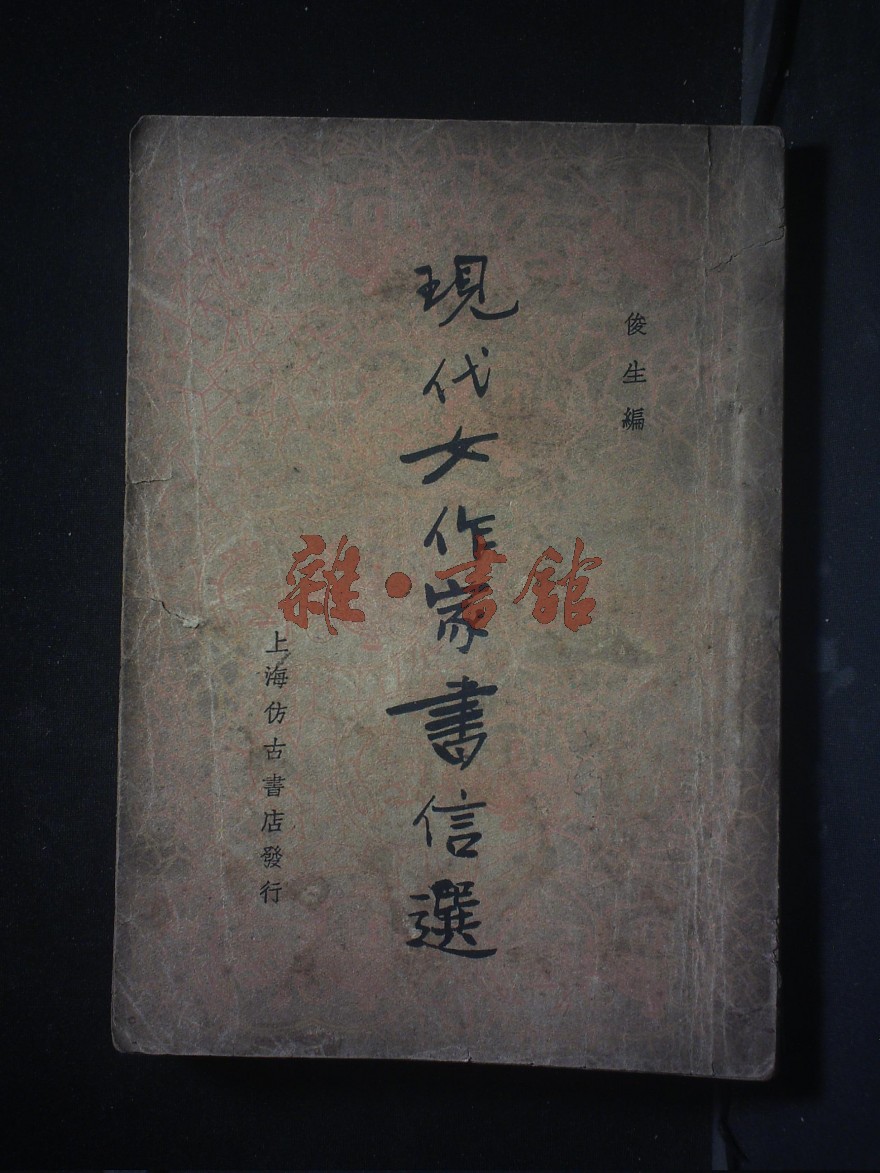 俊生編
現代女作家書信選
上海仿古書店發行
雜·書館